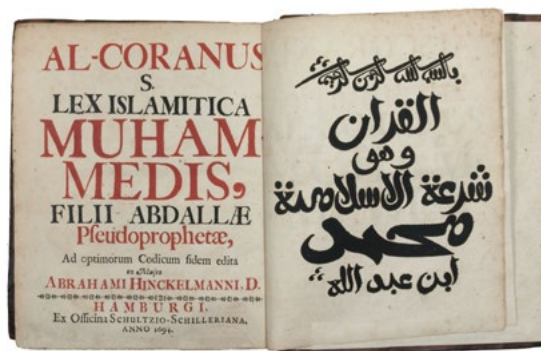 AL-CORANUS
S.
LEX ISLAMITICA
MUHAM-
MEDIS,
FILII ABDALLÆ
Pseudoprophetæ,
Ad optimorum Codicum fidem edita
ex Museo
ABRAHAMI HINCKELMANNI, D.
HAMBURGI,
Ex Officina SCHULTZIO-SCHILLERIANA,
ANNO 1694.
القران
وهو
شرعة الاسلامية
محمد
ابن عبد الله